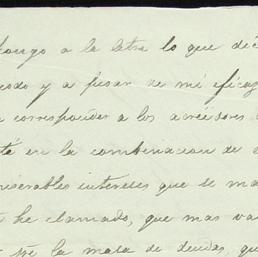 pongo a la letra lo que dic
todo y a pesar de mi eficaz
corresponder a los acreedores
té en la combinacion de
miserables intereses que se ma
he clamado, que mas va
la masa de deudas, qu